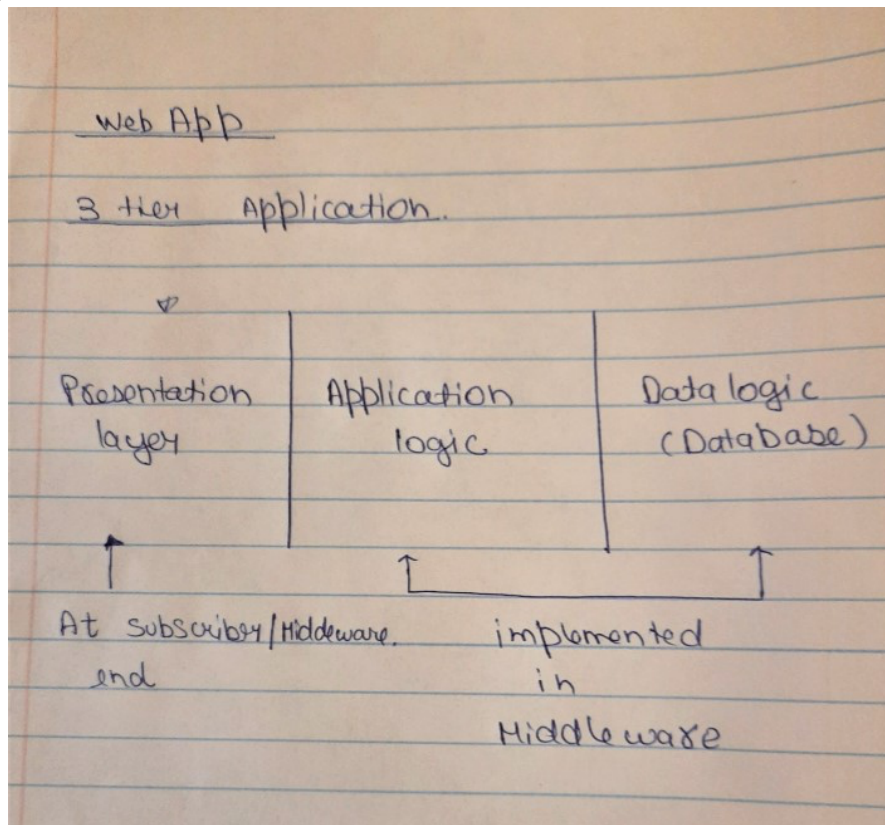 Web App
3 tier Application.
Presentation layer
Application logic
Data logic (Database)
At subscriber/Middeware. end
implemented in Middleware